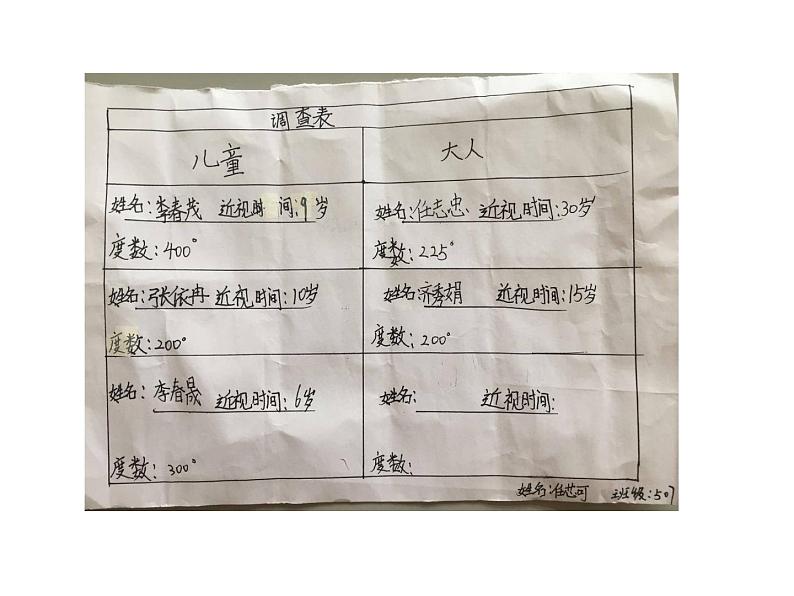 调查表
儿童
大人
姓名:李春茂 近视时间:9岁
度数:400°
姓名:任志忠 近视时间:30岁
度数:225°
姓名:张依冉 近视时间:10岁
度数:200°
姓名:济秀娟 近视时间:15岁
度数:200°
姓名:李春晟 近视时间:6岁
度数:300°
姓名: 近视时间:
度数:
姓名:任芯可 班级:507